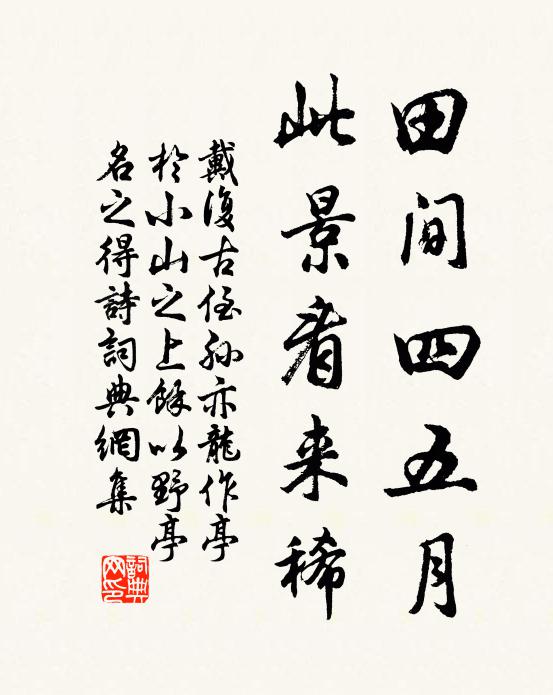 田間四五月
此景看来稀
戴復古侄孫亦龍作亭
於小山之上餘以野亭
名之得詩詞典網集
詞典網印